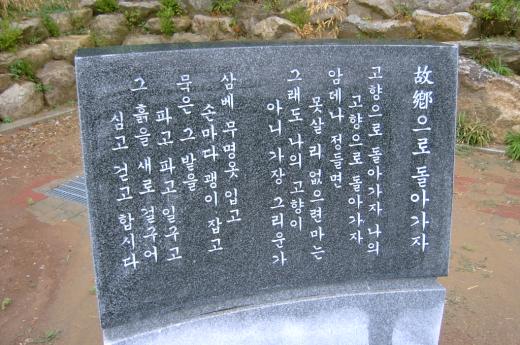 故鄕으로 돌아가자
고향으로 돌아가자 나의
고향으로 돌아가자
암데나 정들면
못살 리 없으련마는
그래도 나의 고향이
아니 가장 그리운가
삼베 무명옷 입고
손마다 괭이 잡고
묵은 그 밭을
파고 파고 일구고
그 흙을 새로 걸구어
심고 걷고 합시다